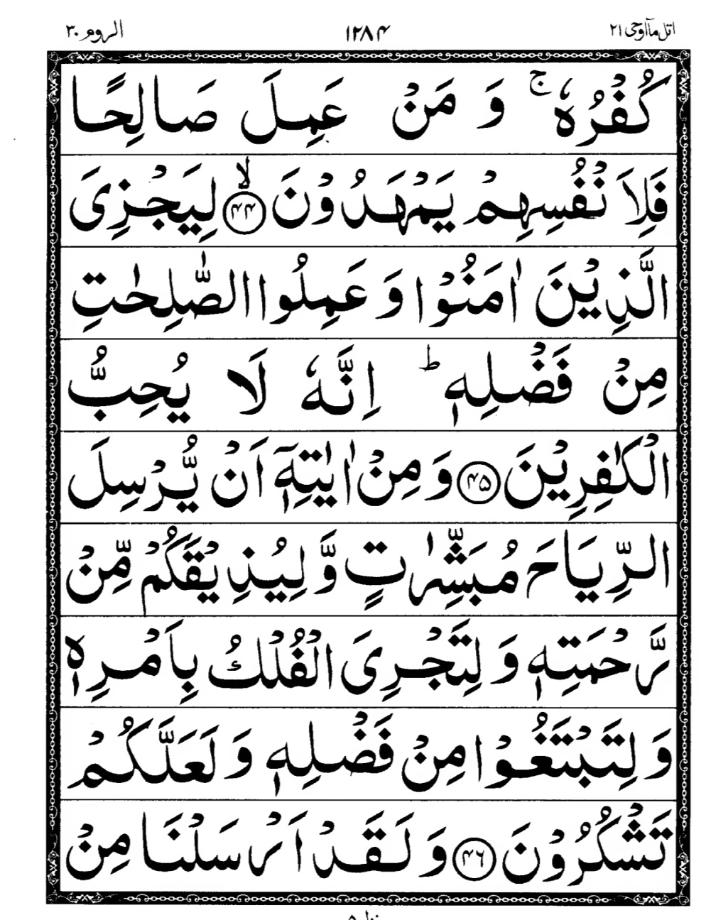 اتل مآ اوحی ۲۱ ۱۲۸۴ الروم ۳۰
كُفْرُهٗ ۚ وَ مَنْ عَمِلَ صَالِحًا
فَلِاَ نْفُسِهِمْ يَمْهَدُوْنَ ﴿۴۴﴾ۙ لِيَجْزِىَ
الَّذِيْنَ اٰمَنُوْا وَ عَمِلُوا الصّٰلِحٰتِ
مِنْ فَضْلِهٖ ؕ اِنَّهٗ لَا يُحِبُّ
الْكٰفِرِيْنَ ﴿۴۵﴾ وَ مِنْ اٰيٰتِهٖٓ اَنْ يُّرْسِلَ
الرِّيَاحَ مُبَشِّرٰتٍ وَّ لِيُذِيْقَكُمْ مِّنْ
رَّحْمَتِهٖ وَ لِتَجْرِىَ الْفُلْكُ بِاَمْرِهٖ
وَ لِتَبْتَغُوْا مِنْ فَضْلِهٖ وَ لَعَلَّكُمْ
تَشْكُرُوْنَ ﴿۴۶﴾ وَ لَقَدْ اَرْسَلْنَا مِنْ